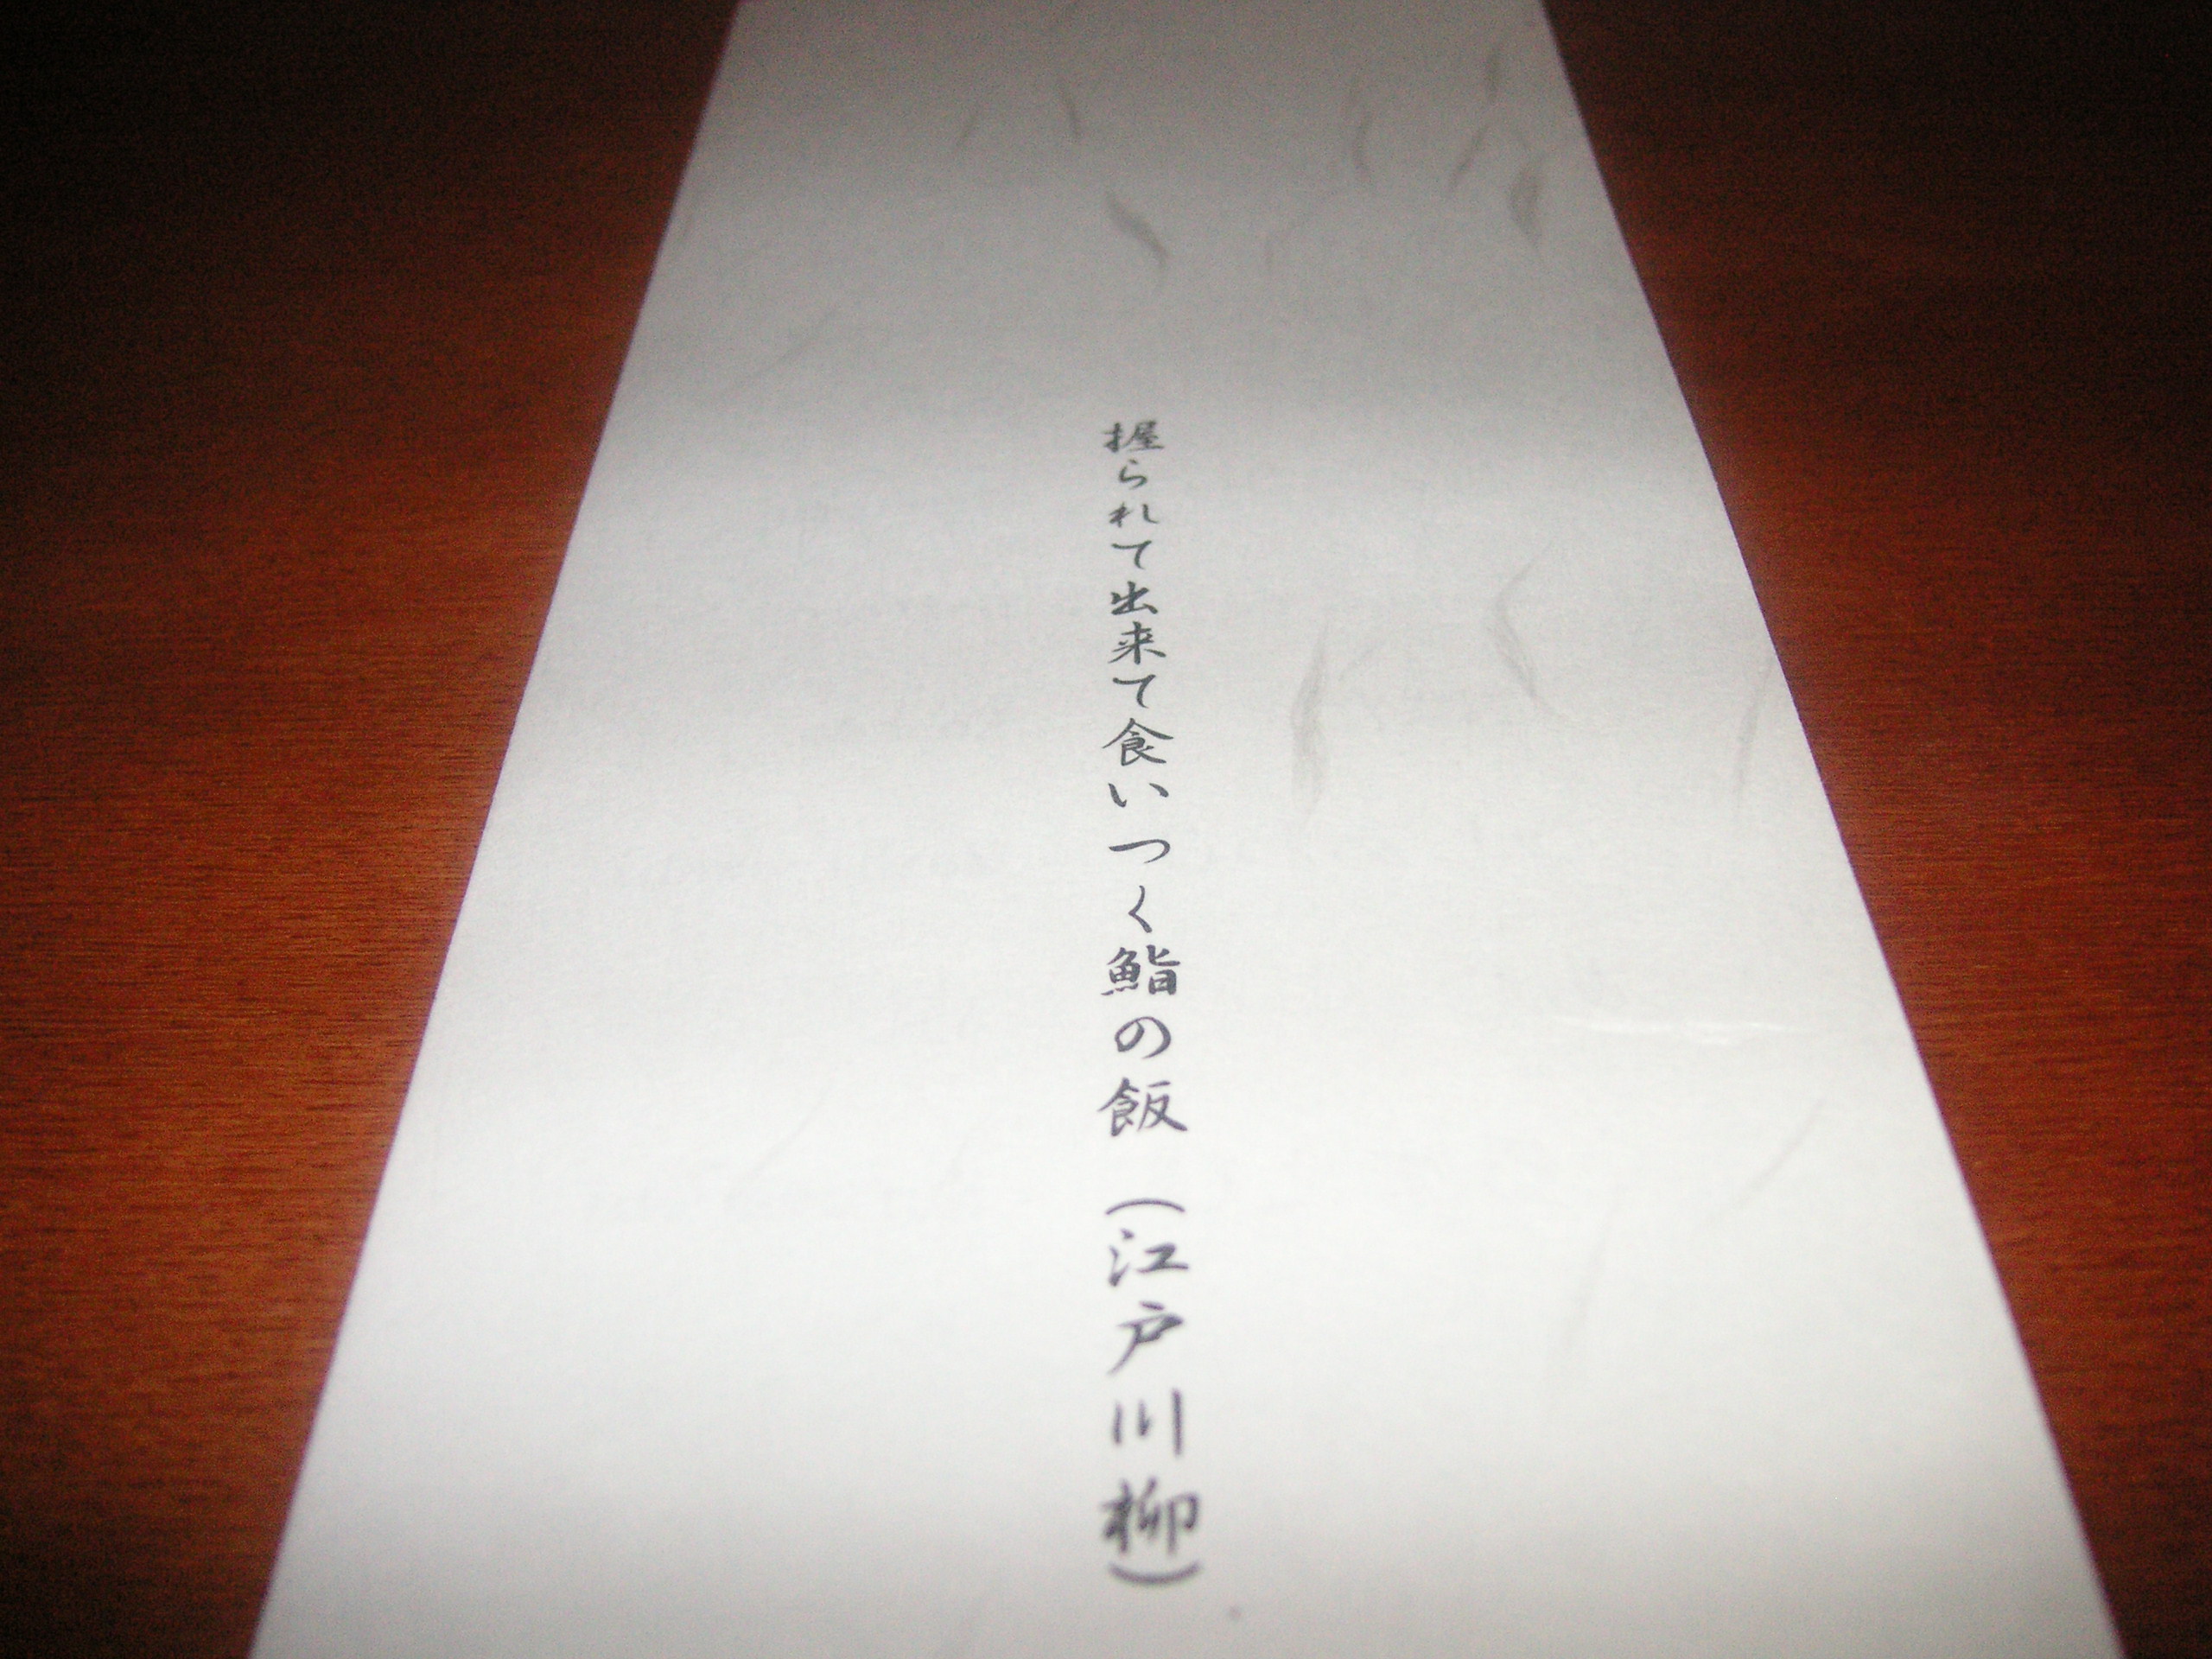 握られて出来て食いつく鮨の飯（江戸川柳）